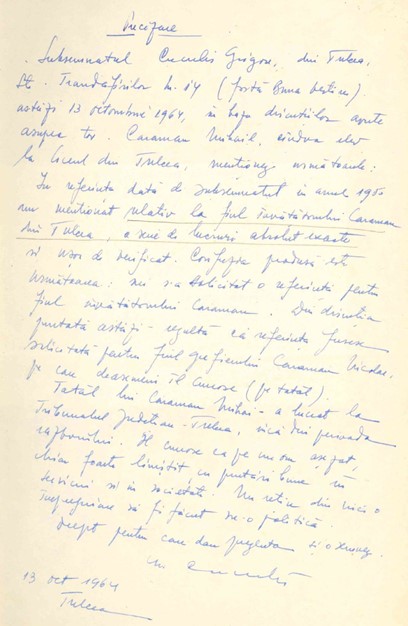 Precizare
Subsemnatul Cuculis Grigore, din Tulcea,
Str. Trandafirilor Nr. 14 (fostă Buna Vestire).
astăzi 13 octombrie 1964, în baza discuțiilor avute
asupra tov. Caraman Mihail, cândva elev
la liceul din Tulcea, menționez următoarele:
În referința dată de subsemnatul în anul 1950
am menționat relativ la fiul învățătorului Caraman
din Tulcea, o serie de lucruri absolut exacte
și ușor de verificat. Confuzia produsă este
următoarea: mi s-a solicitat o referință pentru
fiul învățătorului Caraman. Din discuția
purtată astăzi - rezultă că referința fusese
solicitată pentru fiul grefierului Caraman Nicolae.
pe care deasemeni îl cunosc (pe tatăl).
Tatăl lui Caraman Mihai - a lucrat la
Tribunalul Județean - Tulcea, încă din perioada
războiului. Îl cunosc ca pe un om așezat,
chiar foarte liniștit cu purtări bune în
serviciu și în societate. Nu rețin din nici o
împrejurare să fi făcut vre-o politică.
Drept pentru care dau prezenta și o semnez.
13 oct 1964
Tulcea